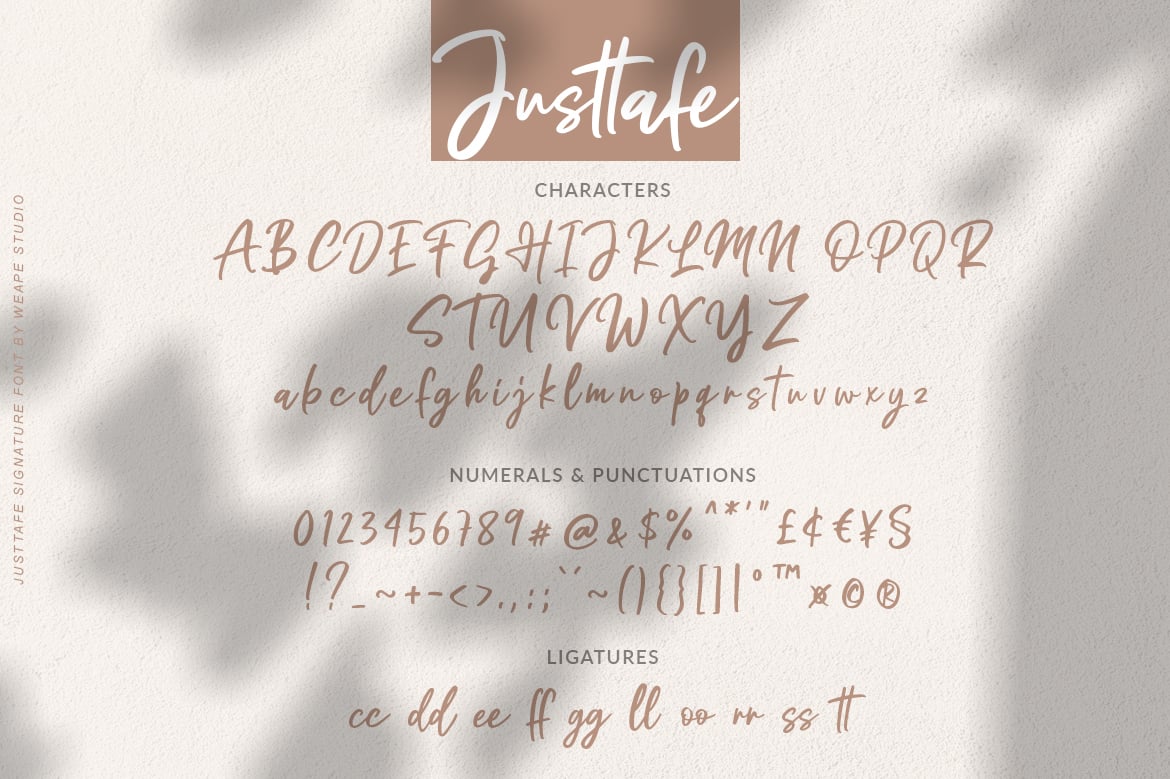 Justtafe
CHARACTERS
ABCDEFGHIJKLMN OPQR
STUVWXYZ
abcdefghijklmnopqrstuvwxyz
NUMERALS & PUNCTUATIONS
0123456789#@&$%^*'"£¢€¥§
!?_~+-<>.,:;`´~(){}[]|°™¤©®
LIGATURES
cc dd ee ff gg ll oo rr ss tt
JUSTTAFE SIGNATURE FONT BY WEAPE STUDIO